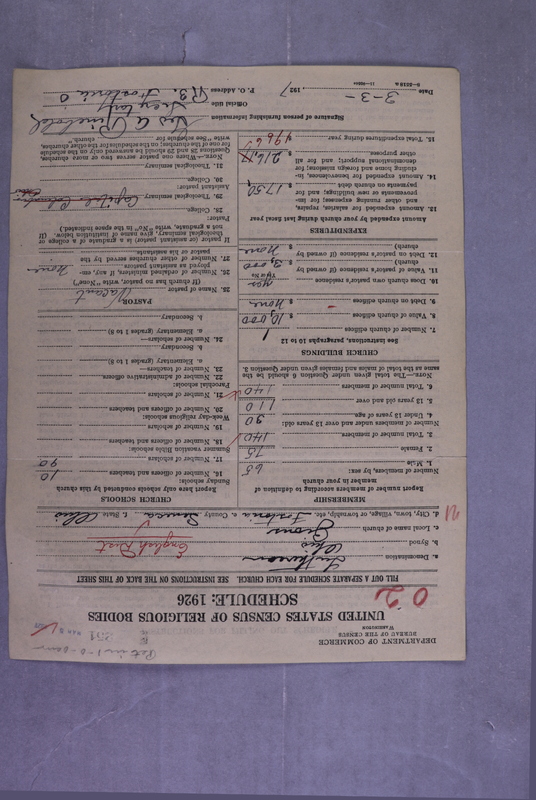 DEPARTMENT OF COMMERCE
BUREAU OF THE CENSUS
WASHINGTON
251
UNITED STATES CENSUS OF RELIGIOUS BODIES
SCHEDULE: 1926
0 2
FILL OUT A SEPARATE SCHEDULE FOR EACH CHURCH. SEE INSTRUCTIONS ON THE BACK OF THIS SHEET
a. Denomination Lutheran
b. Synod Ohio English Dist
c. Local name of church Zions
d. City, town, village, or township, etc. Fostoria e. County Seneca f. State Ohio
MEMBERSHIP
Report number of members according to definition of member in your church
Number of members, by sex:
1. Male 65
2. Female 75
3. Total number of members 140
Number of members under and over 13 years old:
4. Under 13 years of age 30
5. 13 years old and over 110
6. Total number of members 140
NOTE.—The total given under Question 6 should be the same as the total of males and females given under Question 3.
CHURCH BUILDINGS
See instructions, paragraphs 10 to 12
7. Number of church edifices 1
8. Value of church edifices $ 10,000
9. Debt on church edifices $ None
10. Does church own pastor's residence Yes
Yes or No
11. Value of pastor's residence (if owned by church) $ 3,000
12. Debt on pastor's residence (if owned by church) $ None
EXPENDITURES
Amount expended by your church during last fiscal year
13. Amount expended for salaries, repairs, and other running expenses; for improvements or new building; and for payments on church debt $ 1750
14. Amount expended for benevolences, including home and foreign missions; for denominational support; and for all other purposes $ 216
15. Total expenditures during year $ 1966
CHURCH SCHOOLS
Report here only schools conducted by this church
Sunday schools:
16. Number of officers and teachers 10
17. Number of scholars 90
Summer vacation Bible schools:
18. Number of officers and teachers
19. Number of scholars
Week-day religious schools:
20. Number of officers and teachers
21. Number of scholars
Parochial schools:
22. Number of administrative officers
23. Number of teachers—
a. Elementary (grades 1 to 8)
b. Secondary
24. Number of scholars—
a. Elementary (grades 1 to 8)
b. Secondary
PASTOR
25. Name of pastor Vacant
(If church has no pastor, write "None")
26. Number of ordained ministers, if any, employed as assistant pastors None
27. Number of other churches served by the pastor or his assistants
If pastor (or assistant pastor) is a graduate of a college or theological seminary, give name of institution below. (If not a graduate, write "No" in the space indicated.)
Pastor:
28. College
29. Theological seminary
Assistant pastor:
30. College
31. Theological seminary
NOTE.—Where one pastor serves two or more churches, Questions 28 and 29 should be answered only on the schedule for one of the churches; on the schedule for the other churches, write "See schedule for church."
Signature of person furnishing information
Official title
P. O. Address R3. Fostoria O
Date 3-3-, 1927